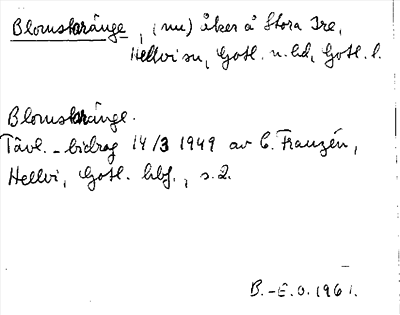 Blomskränge, (nu) åker å Stora Ire,
Hellvi sn, Gotl. n. hd, Gotl. l.
Blomskränge.
Tävl. - bidrag 14/3 1949 av C. Franzén,
Hellvi, Gotl. , s. 2.
B.-E. O. 1961.